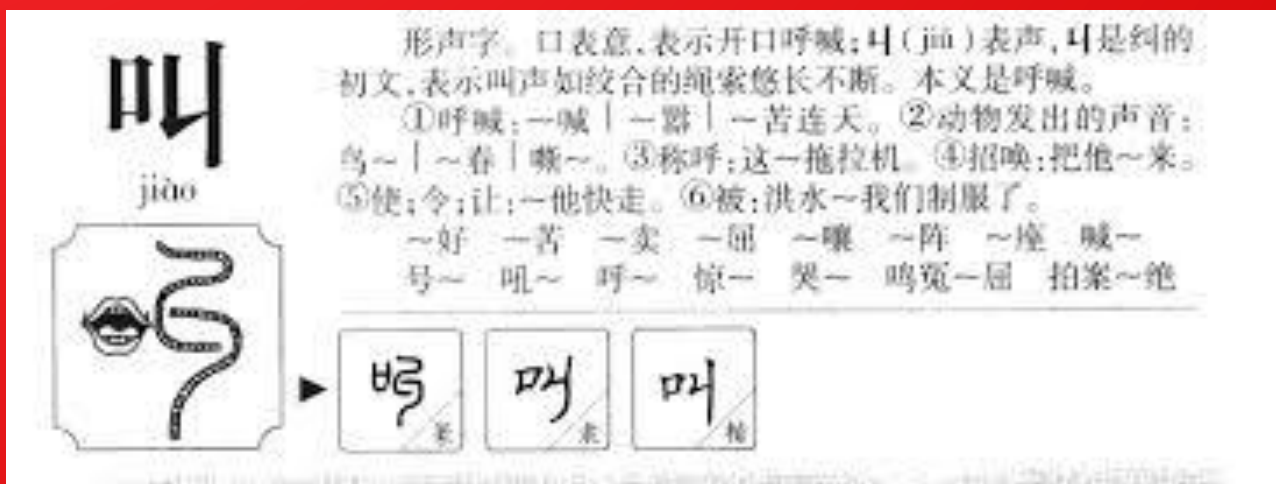 叫
jiào
形声字。口表意,表示开口呼喊;丩(jiū)表声,丩是纠的
初文,表示叫声如绞合的绳索悠长不断。本义是呼喊。
①呼喊:~喊|~嚣|~苦连天。②动物发出的声音:
鸟~|~春|嘶~。③称呼:这~拖拉机。④招唤:把他~来。
⑤使;令;让:~他快走。⑥被:洪水~我们制服了。
~好 ~苦 ~卖 ~屈 ~嚷 ~阵 ~座 喊~
号~ 吼~ 呼~ 惊~ 哭~ 鸣冤~屈 拍案~绝
叫 篆
叫 隶
叫 楷